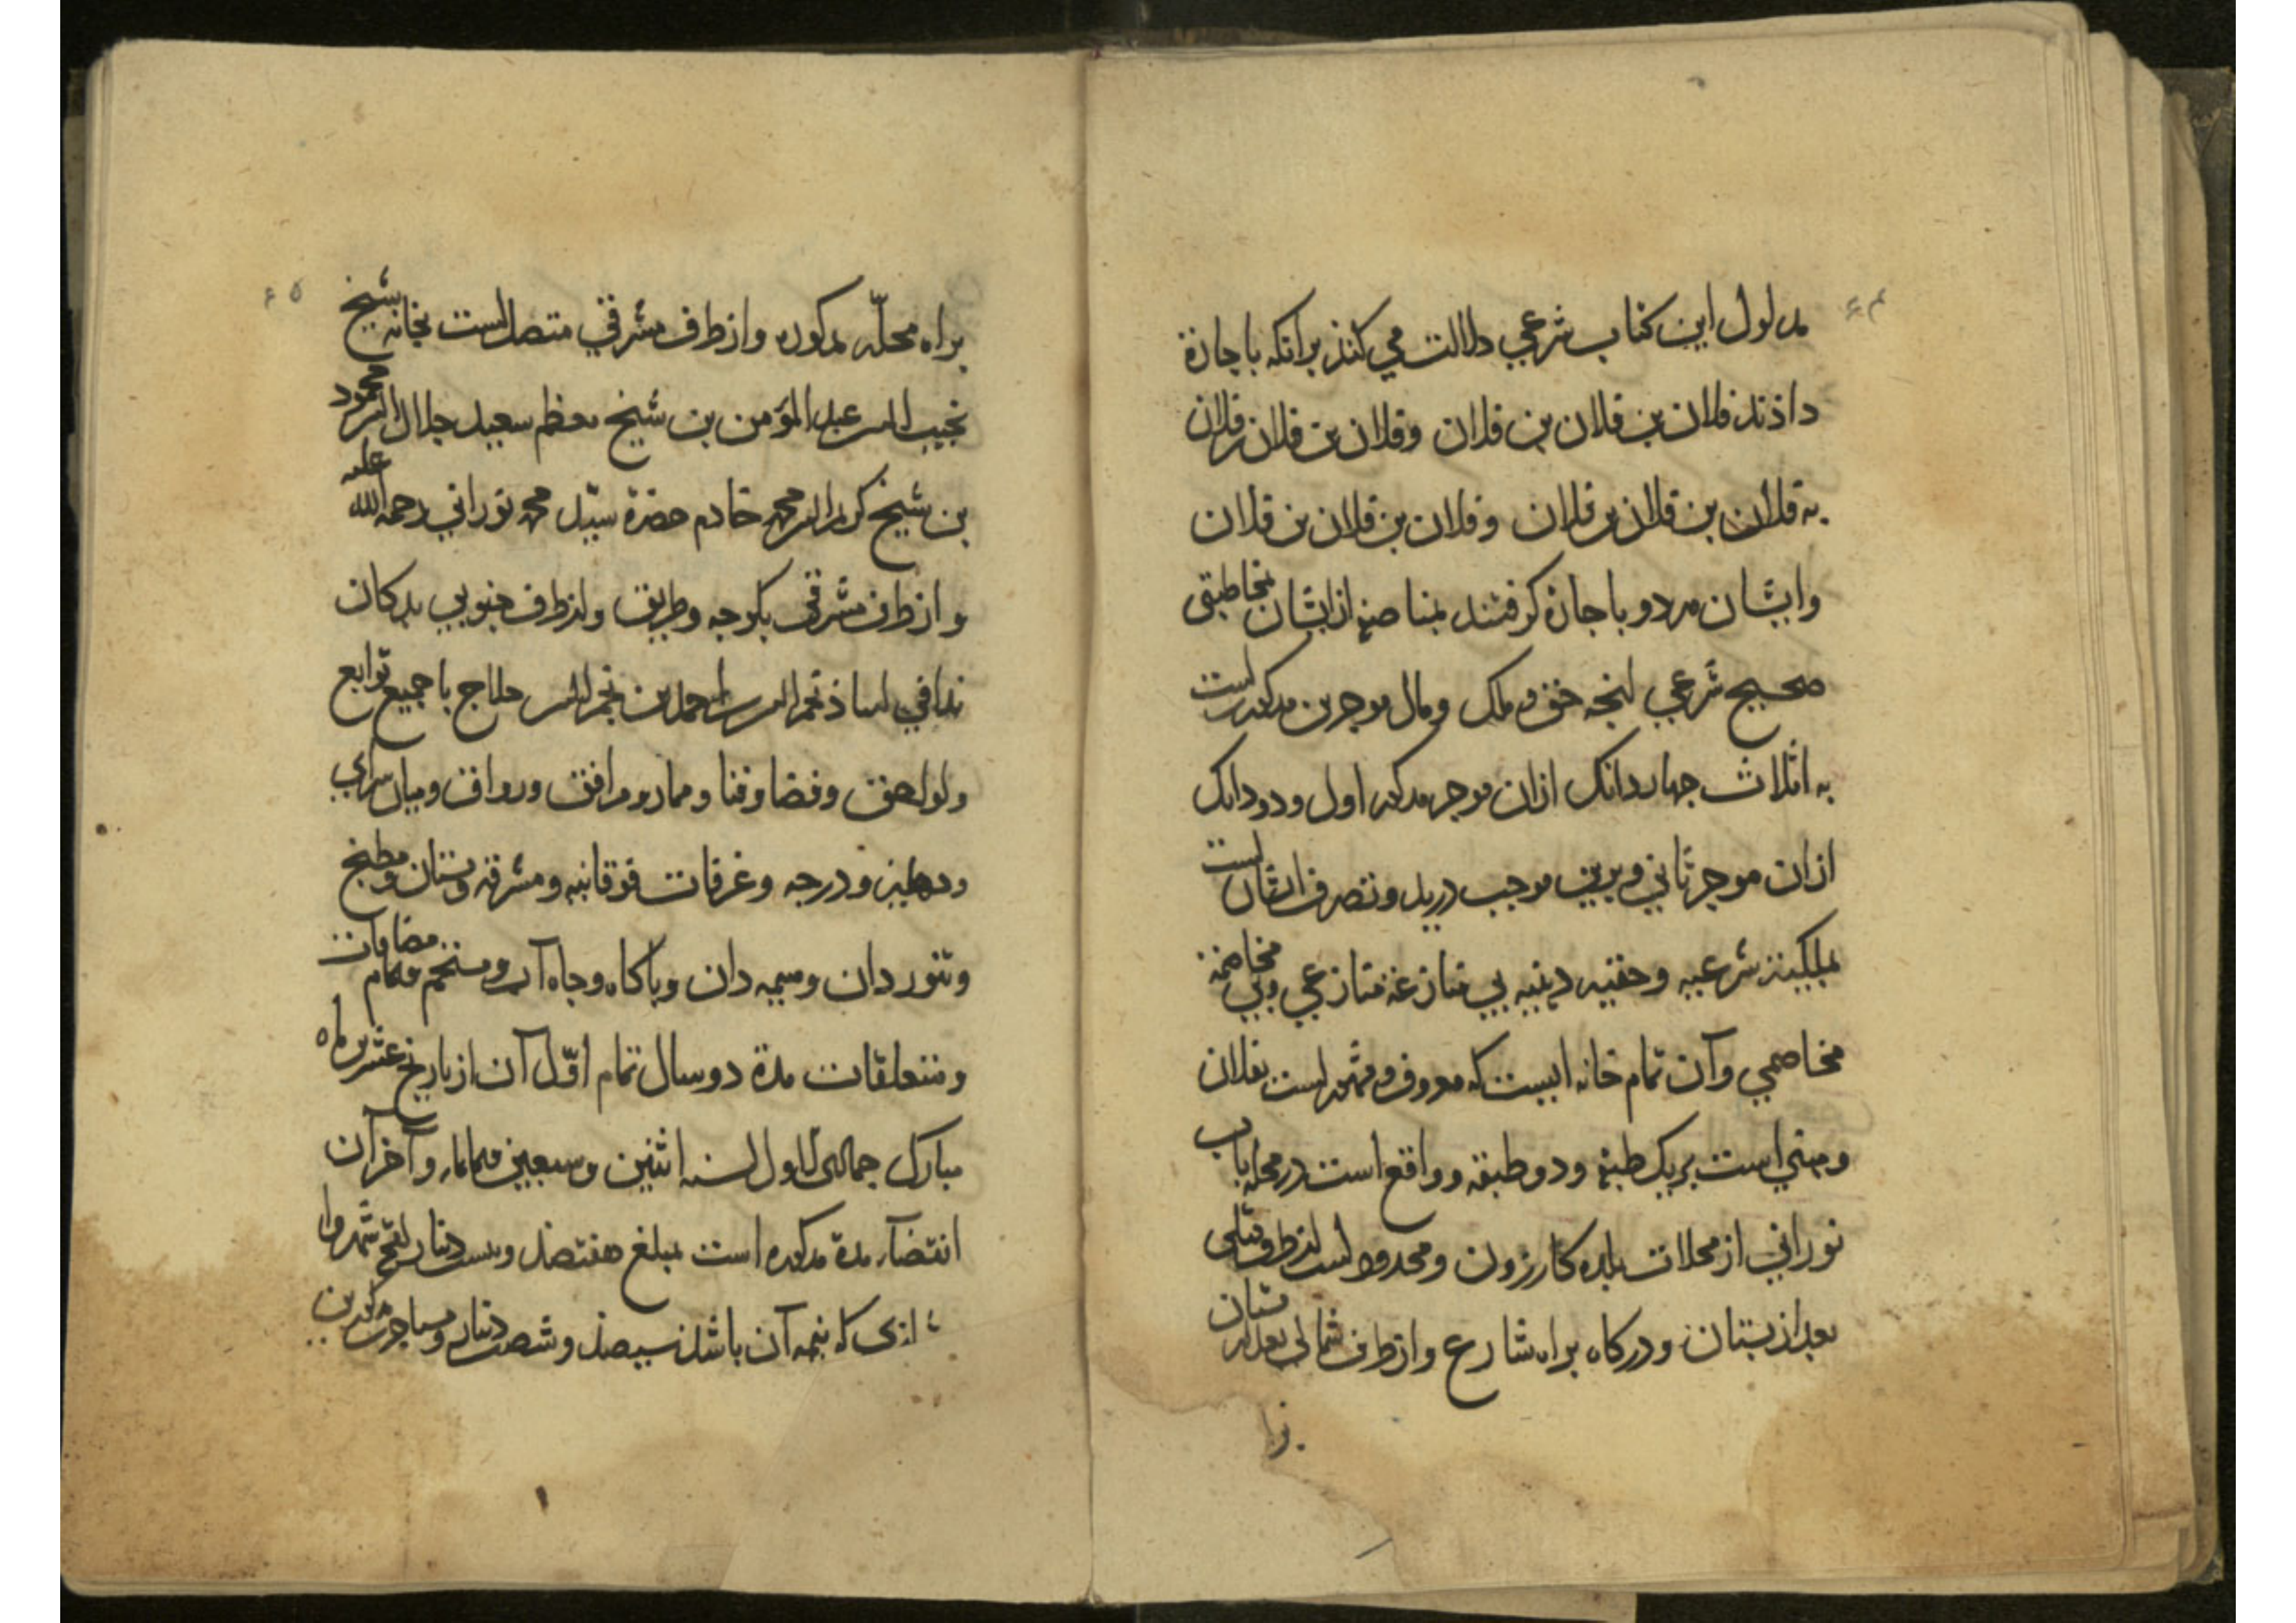 مدلول این کتاب شرعی دلالت می کنذ برآنکه باجازة
داذند فلان بن فلان بن فلان وفلان بن فلان بن فلان
به فلان بن فلان بن فلان وفلان بن فلان بن فلان
وایشان هر دو باجازة کرفتند بمناصفه ازایشان
صحیح شرعی انچه حق و ملک ومال موجرین مذکورین است
به اثلاث جهاردانک ازان موجر مذکور اول ودودانک
ازان موجر ثانی وبرین موجب دریذ وتصرف ایشان است
بملکیة شرعیه وحقیه دینیه بی منازعة منازعی وبی مخاصمة
مخاصمی وآن تمام خانه ایست که معروف ومشهور است بفلان
ومبنی است بریک طبقه ودو طبقه وواقع است درمحله باب
نورانی ازمحلات بلده کازرون ومحدود است ازطرف قبلی
بعد از بستان ودرکاه براه شارع وازطرف شمالی بعد از بستان
براه محلّه مذکوره وازطرف مشرقی متصل است بخانه شیخ
نجیب الدین عبدالمؤمن بن شیخ معظم سعید جلال الدین محمود
بن شیخ کریم الدین محمد خادم حضرة سیّد محمد نورانی رحمة الله علیه
وازطرف مشرقی بکوجه وطریق وازطرف جنوبی بدکان
ندافی استاذ نجم الدین احمد بن نجم الدین حلاج باجمیع توابع
ولواحق وفضا وفنا وممار ومرافق ورواق ومیان سرای
ودهلیز ودرجه وغرفات فوقانیه ومشرقه وبستان ومطبخ
وتنوردان وهیمه دان وباکاه وجاه آب ومستحم وتمام مضافات
ومتعلقات مدة دو سال تمام اوّل آن ازتاریخ عشرین ماه
مبارک جمادی الاول لسنه اثنین وسبعین وثمانمایه وآخر آن
انقضآء مدة مذکوره است بمبلغ هفتصذ وبیست دینار
که نیمه آن باشذ سیصذ وشصت دینار